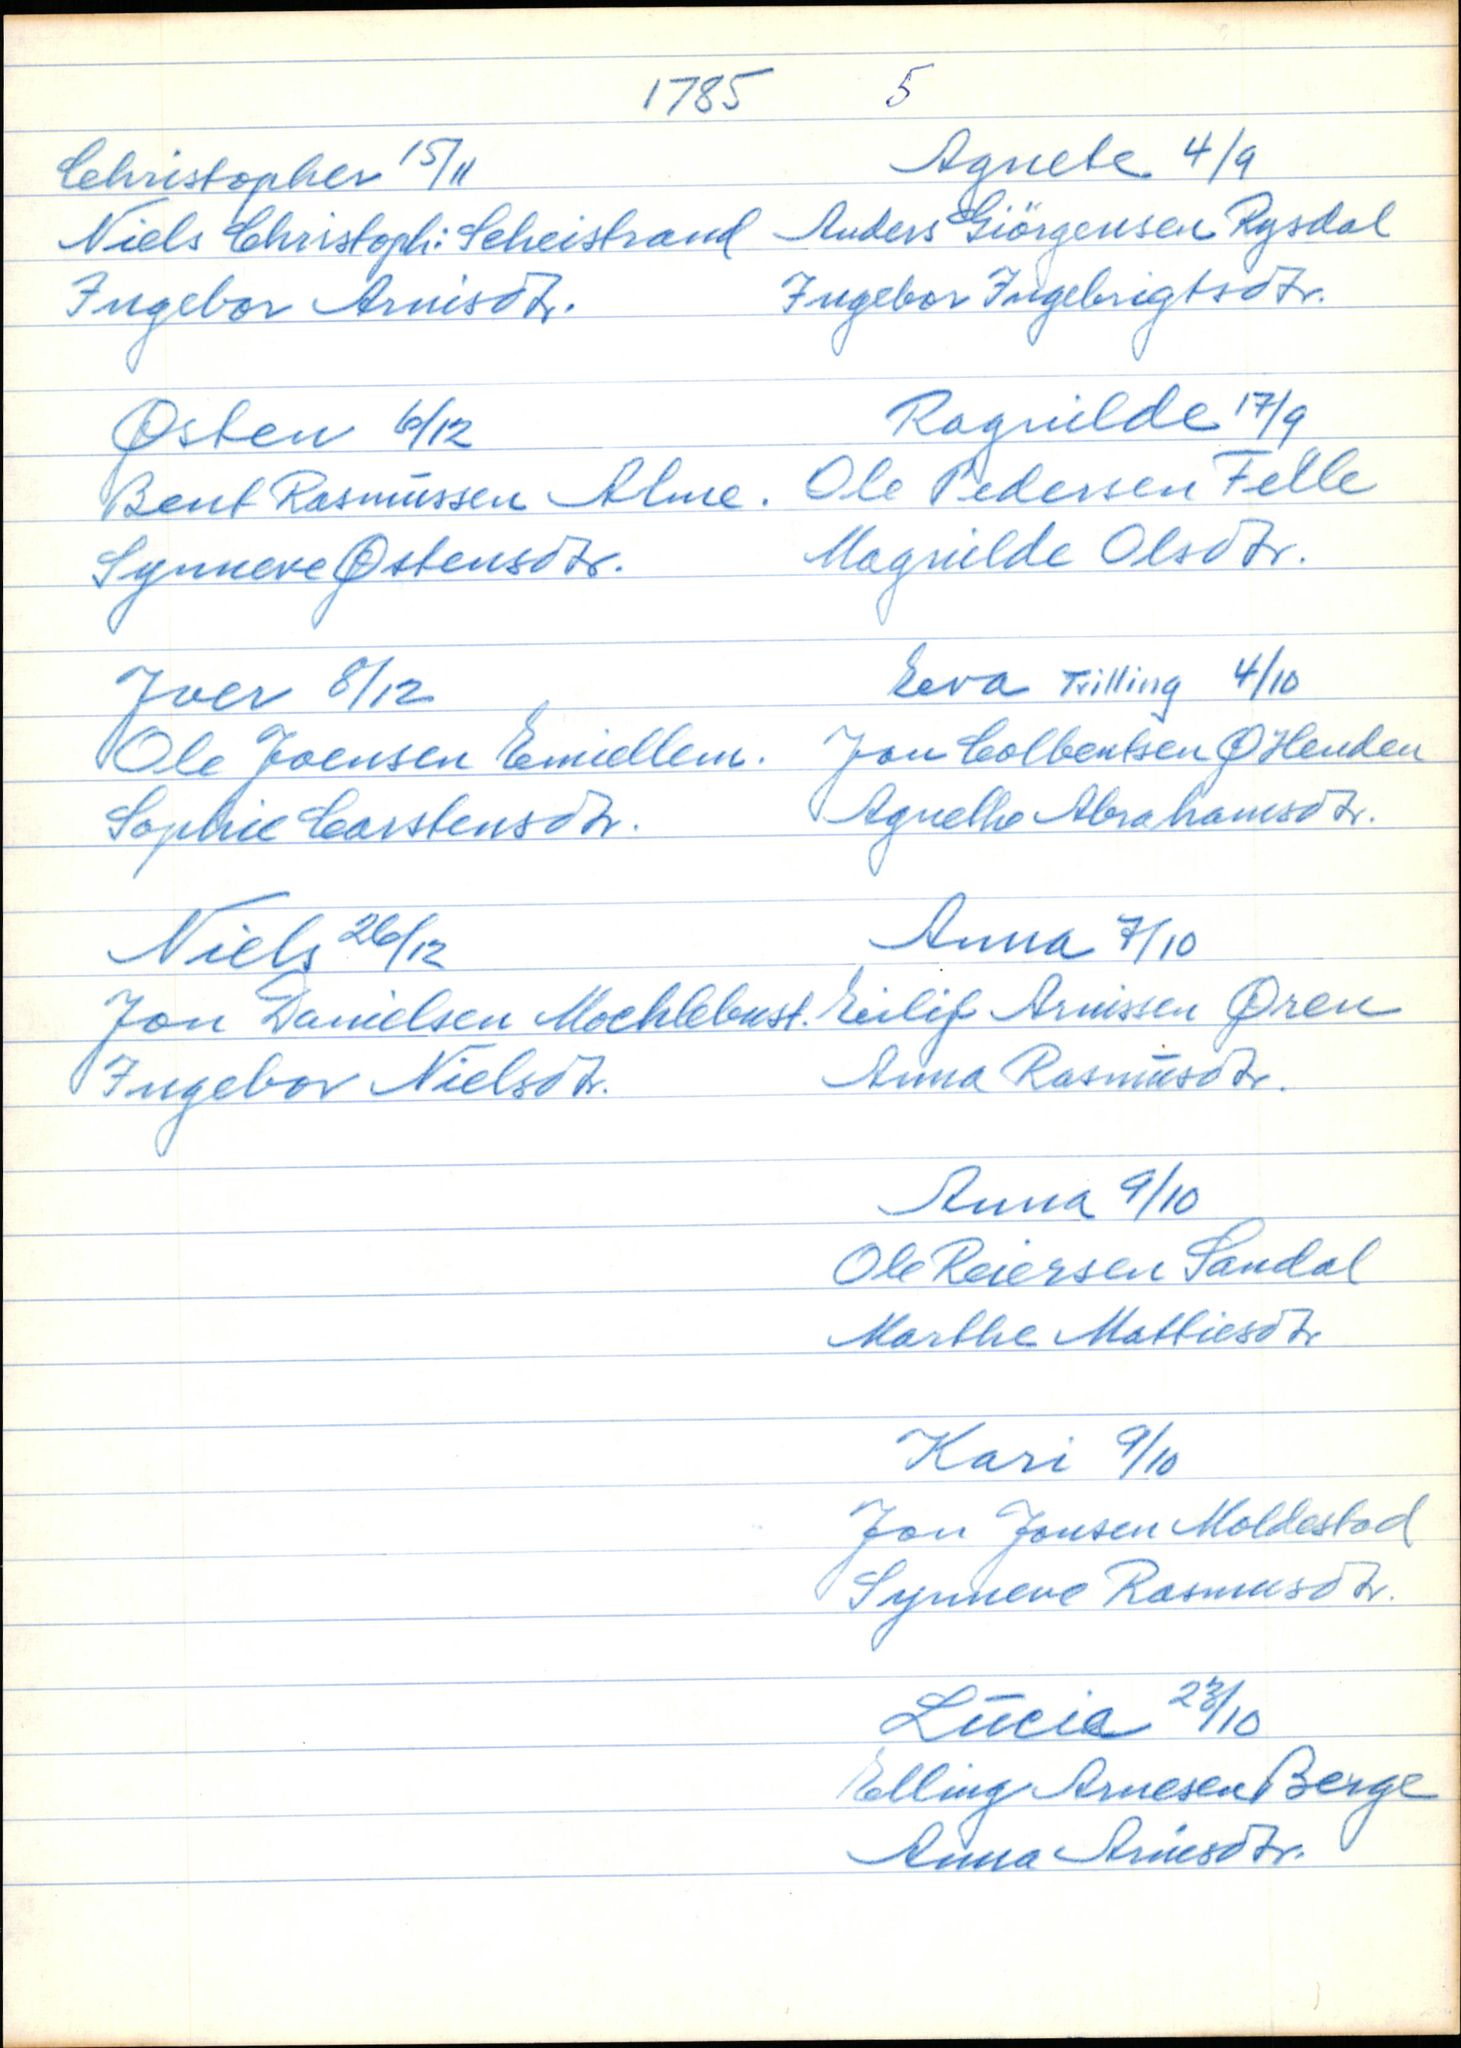 1785 5
Christopher 15/11
Niels Christoph: Scheistrand
Ingebor Arnisdtr.
Østen 6/12
Bent Rasmussen Alme.
Synneve Østensdtr.
Iver 8/12
Ole Joensen Emiellem.
Sophie Carstensdtr.
Niels 26/12
Jon Danielsen Mochlebust.
Ingebor Nielsdtr.
Agnete 4/9
Anders Giörgensen Rysdal
Ingebor Ingebrigtsdtr.
Ragnilde 17/9
Ole Pedersen Felle
Magnilde Olsdtr.
Eeva Trilling 4/10
Jon Colbentsen ØHenden
Agnethe Abrahamsdtr.
Anna 7/10
Eilif Arnissen Øren
Anna Rasmusdtr.
Anna 9/10
Ole Reiersen Sandal
Marthe Mattiesdtr
Kari 9/10
Jon Jonsen Moldestad
Synneve Rasmusdtr.
Lucia 23/10
Elling Arnesen Berge
Anna Arnesdtr.